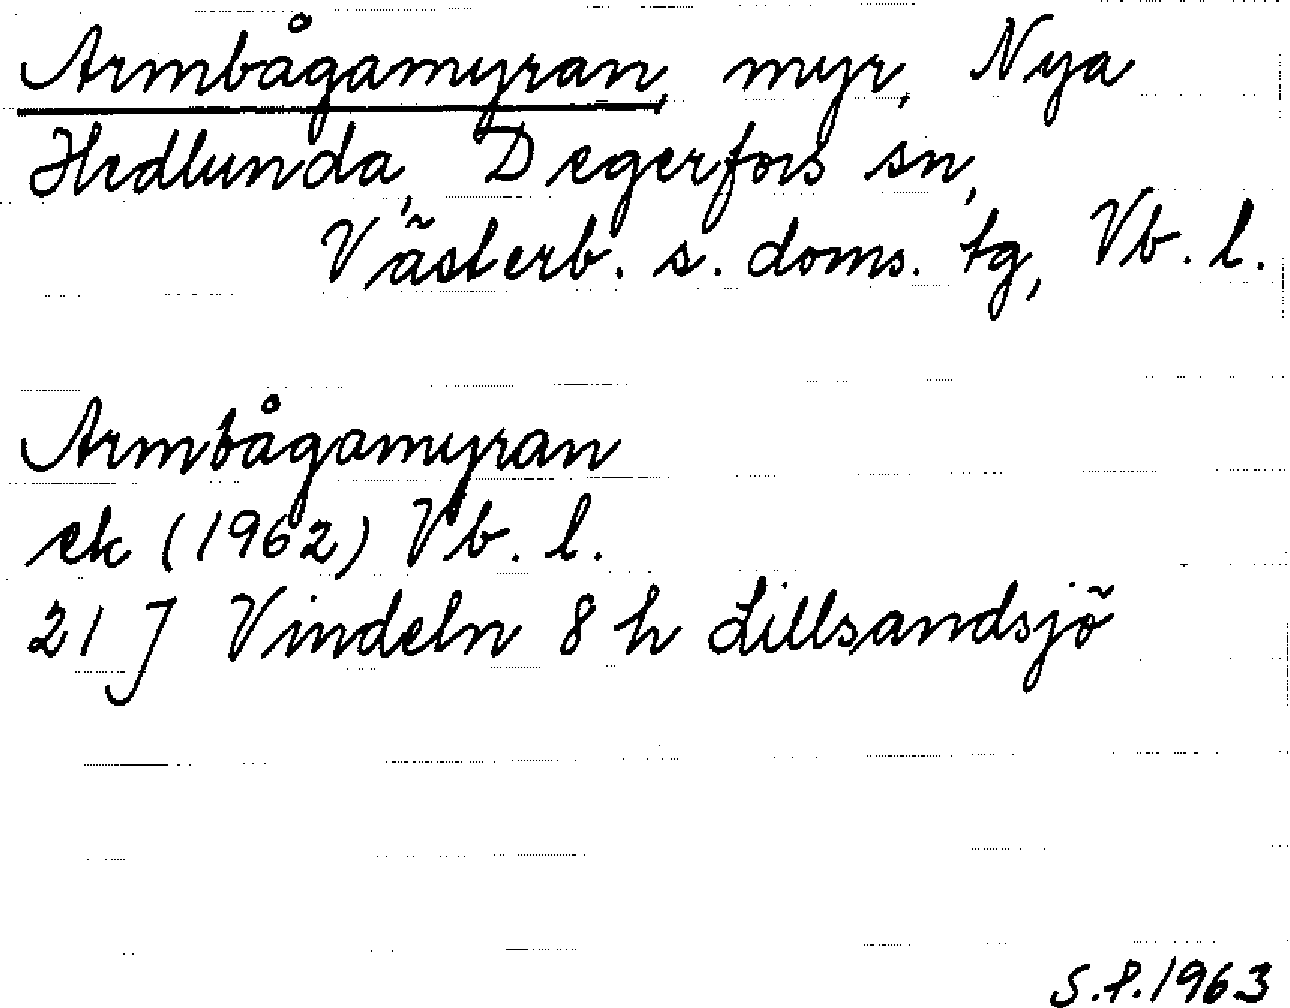 Armbågamyran, myr, Nya
Hedlunda, Degerfors sn,
Västerb. s. doms. tg, Vb. l.
Armbågamyran
ek (1962) Vb. l.
21 J Vindeln 8 h Lillsandsjö
S.P. 1963